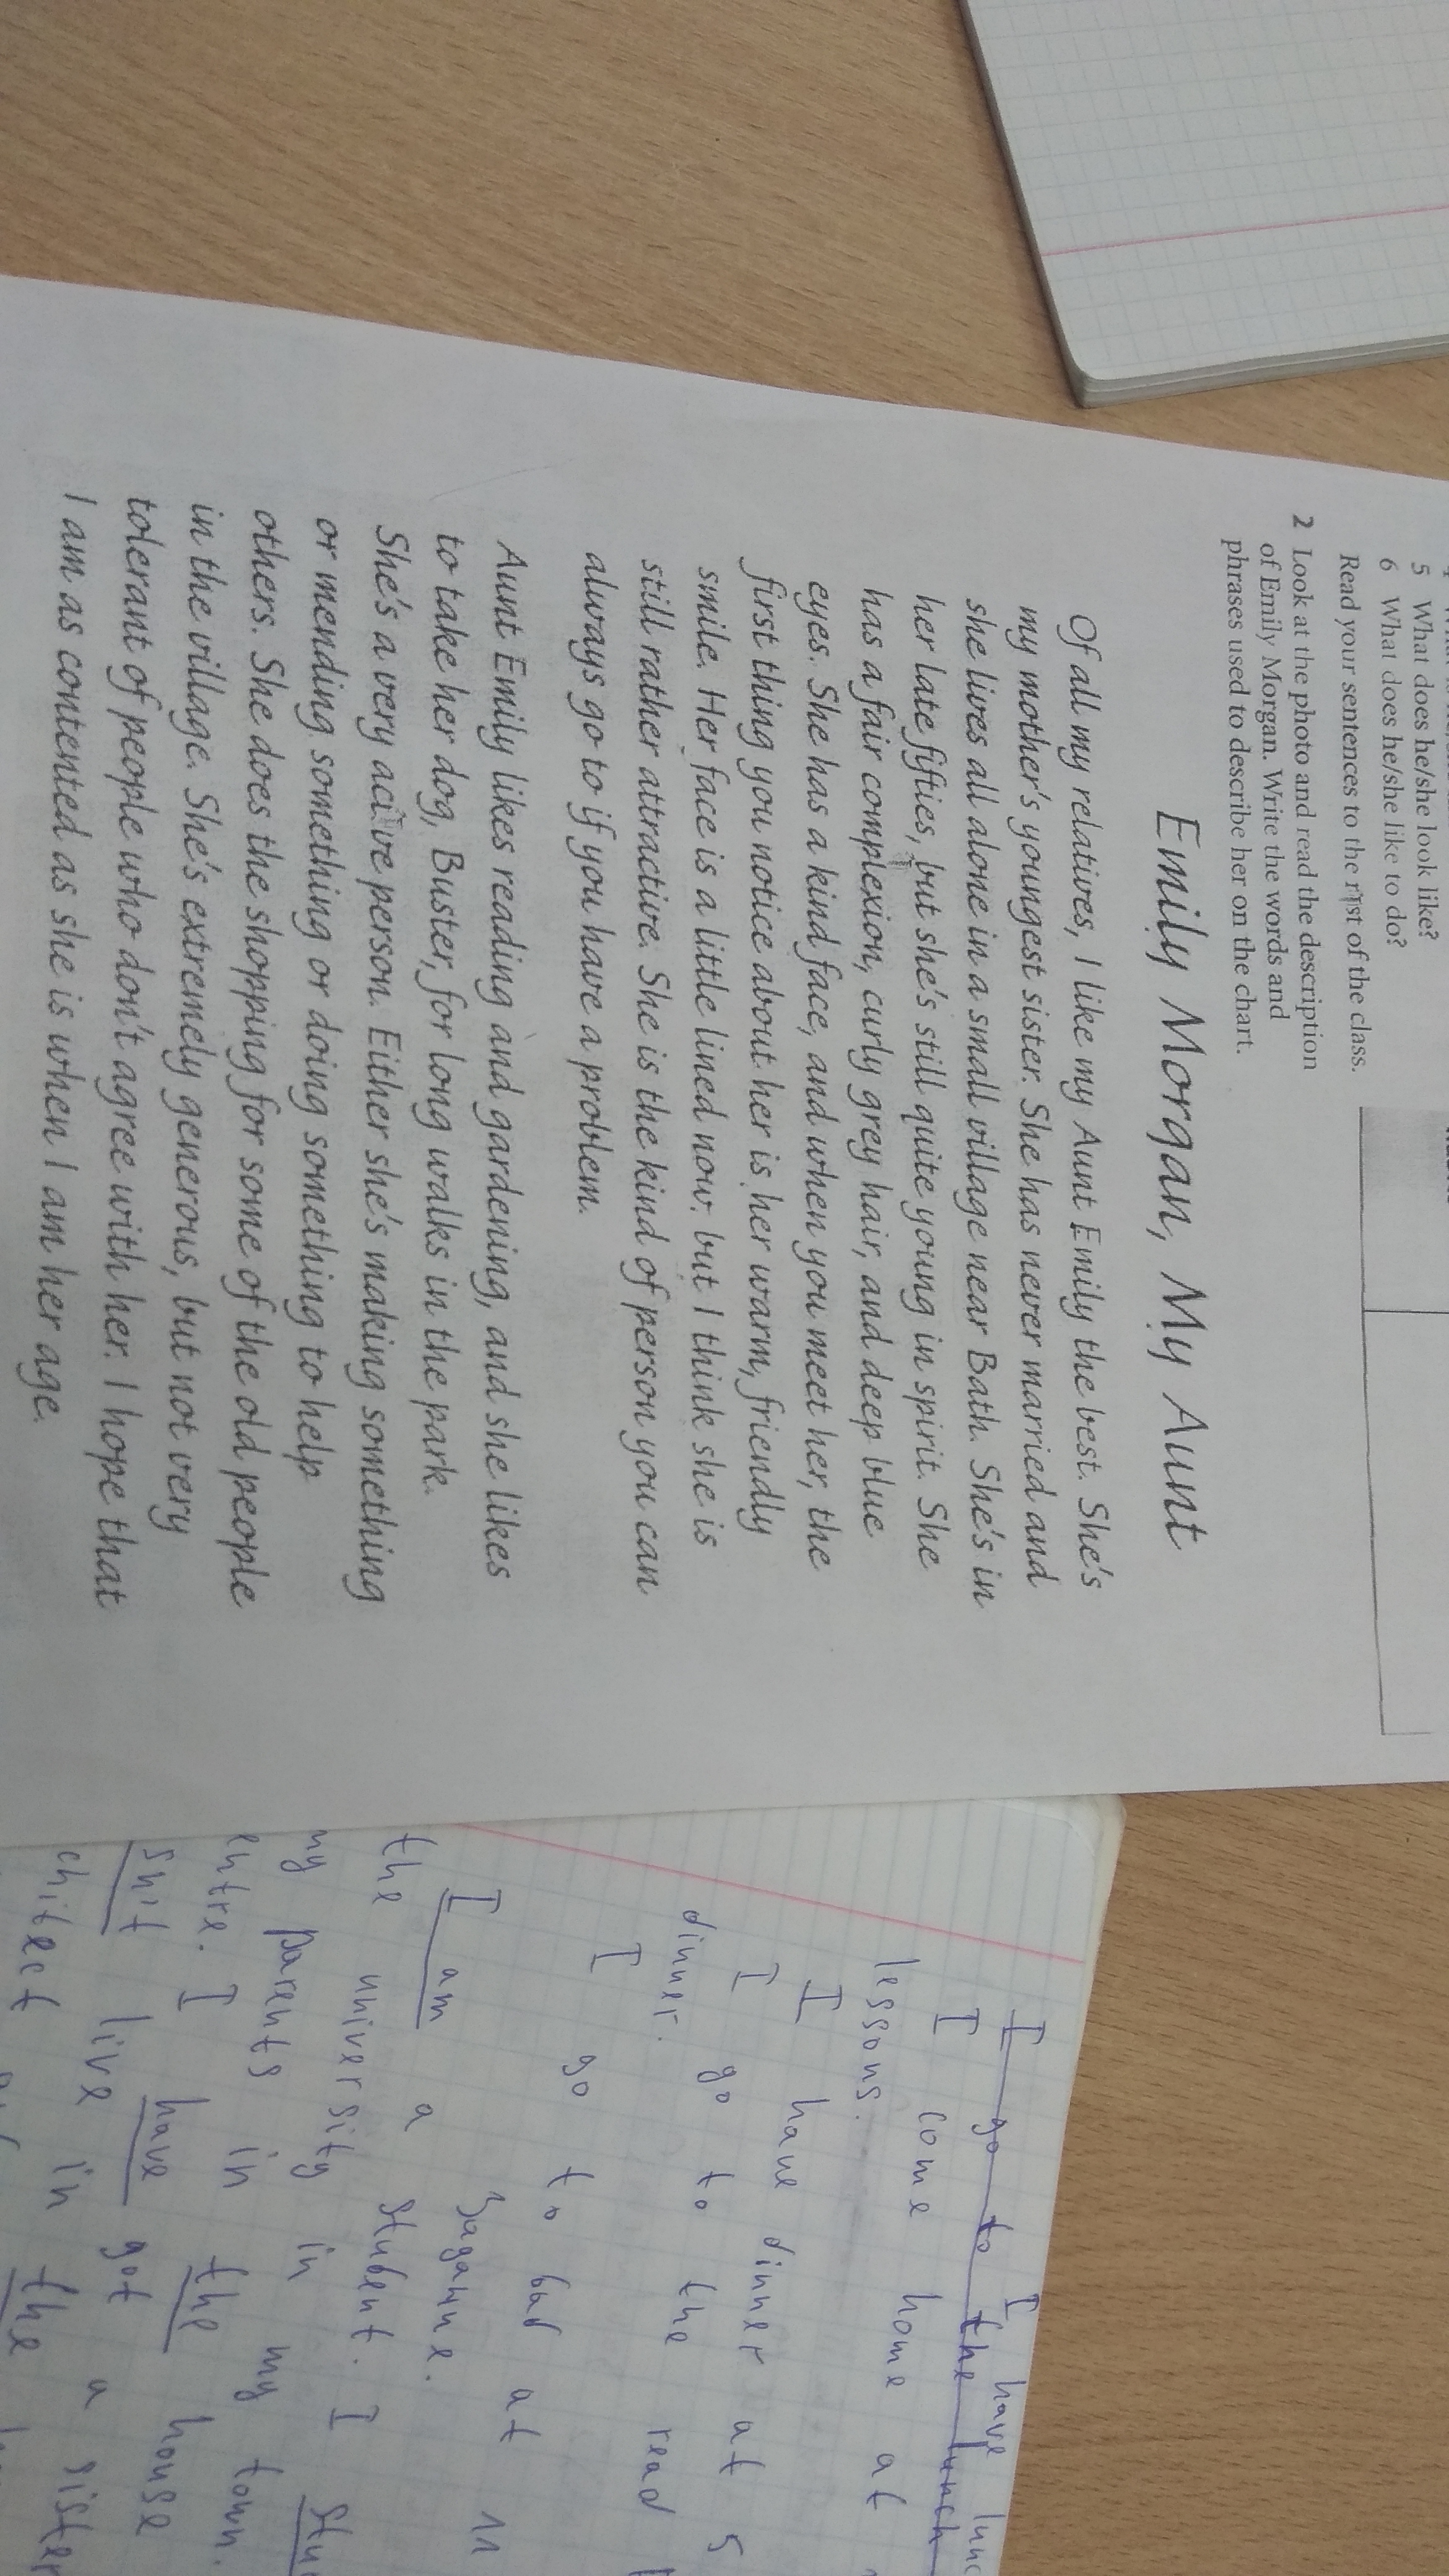 5 What does he/she look like?
6 What does he/she like to do?
Read your sentences to the rest of the class.
2 Look at the photo and read the description
of Emily Morgan. Write the words and
phrases used to describe her on the chart.
Emily Morgan, My Aunt
Of all my relatives, I like my Aunt Emily the best. She's
my mother's youngest sister. She has never married and
she lives all alone in a small village near Bath. She's in
her late fifties, but she's still quite young in spirit. She
has a fair complexion, curly grey hair, and deep blue
eyes. She has a kind face, and when you meet her, the
first thing you notice about her is her warm, friendly
smile. Her face is a little lined now, but I think she is
still rather attractive. She is the kind of person you can
always go to if you have a problem.
Aunt Emily likes reading and gardening, and she likes
to take her dog, Buster, for long walks in the park.
She's a very active person. Either she's making something
or mending something or doing something to help
others. She does the shopping for some of the old people
in the village. She's extremely generous, but not very
tolerant of people who don't agree with her. I hope that
I am as contented as she is when I am her age.
I have
I go to the lunch
I come home at
lessons.
I have dinner at 5
I go to the read
dinner.
I go to bad at 11
Задание.
I am a student. I
the university in my town.
my parents in the house
entre. I have got a sister
sn't live in the
chitect